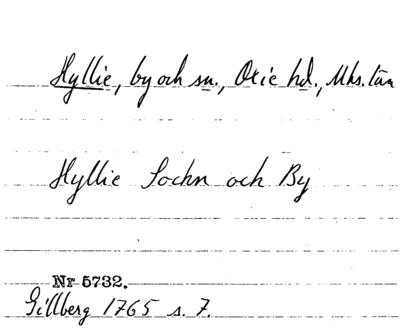 Hyllie, by och sn., Oxie hd., Mhs. län
Hyllie Sochn och By
Nr 5732.
Gillberg 1765 s. 7.